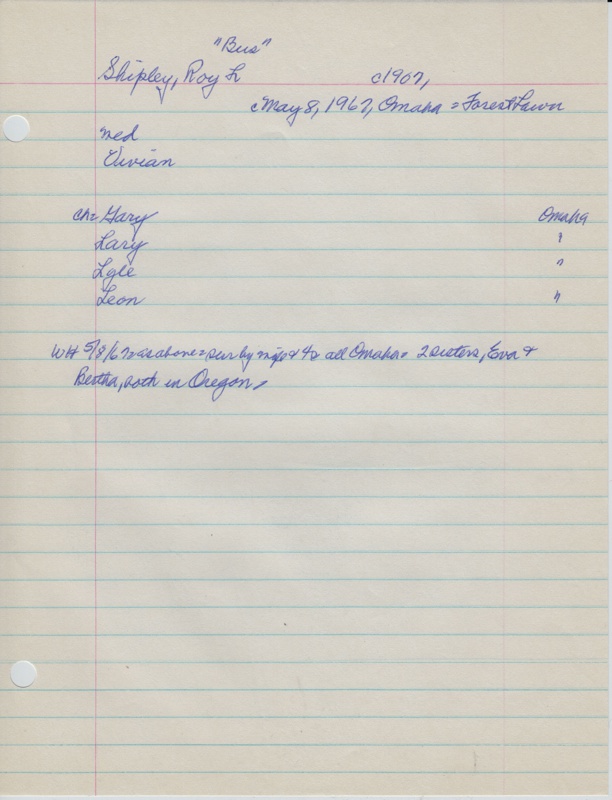 "Bus"
Shipley, Roy L c1907,
c May 8, 1967, Omaha = Forest Lawn
med
Vivian
ch= Gary Omaha
Lary "
Lyle "
Leon "
WH 5/8/67= as above= sur by wife & 4s all Omaha= 2 sisters, Eva &
Bertha, both in Oregon,